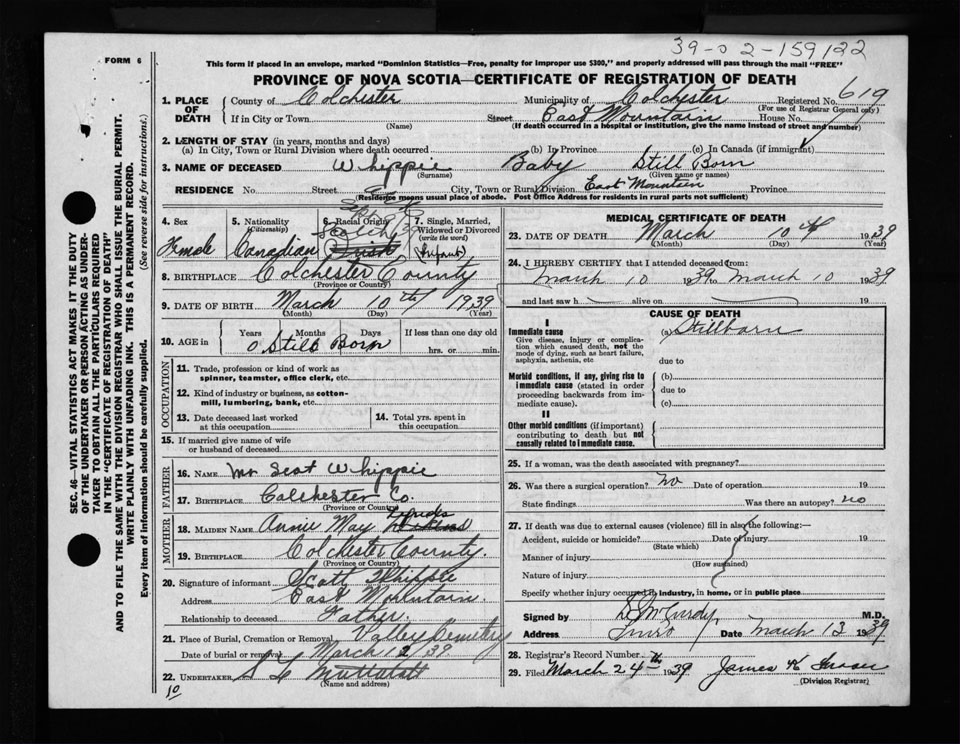 39-02-159122
FORM 6
This form if placed in an envelope, marked "Dominion Statistics—Free, penalty for improper use $300," and properly addressed will pass through the mail "FREE"
PROVINCE OF NOVA SCOTIA—CERTIFICATE OF REGISTRATION OF DEATH
1. PLACE OF DEATH
County of Colchester Municipality of Colchester Registered No. 619
(For use of Registrar General only)
If in City or Town (Name) Street East Mountain House No.
(If death occurred in a hospital or institution, give the name instead of street and number)
2. LENGTH OF STAY (in years, months and days)
(a) In City, Town or Rural Division where death occurred (b) In Province (c) In Canada (if immigrant)
3. NAME OF DECEASED Whippie Baby Still Born
(Surname) (Given name or names)
RESIDENCE No. Street City, Town or Rural Division East Mountain Province
(Residence means usual place of abode. Post Office Address for residents in rural parts not sufficient)
4. Sex Female
5. Nationality (Citizenship) Canadian
6. Racial Origin Scotch Irish
7. Single, Married, Widowed or Divorced (write the word) (Infant)
8. BIRTHPLACE Colchester County
(Province or Country)
9. DATE OF BIRTH March 10th 1939
(Month) (Day) (Year)
10. AGE in Years Months Days If less than one day old
0 Still Born hrs. or min.
OCCUPATION
11. Trade, profession or kind of work as spinner, teamster, office clerk, etc.
12. Kind of industry or business, as cotton-mill, lumbering, bank, etc.
13. Date deceased last worked at this occupation
14. Total yrs. spent in this occupation
15. If married give name of wife or husband of deceased
FATHER
16. NAME Mr Scot Whippie
17. BIRTHPLACE Colchester Co.
(Province or Country)
MOTHER
18. MAIDEN NAME Annie May
19. BIRTHPLACE Colchester County.
(Province or Country)
20. Signature of informant Scott Whippie
Address East Mountain.
Relationship to deceased Father.
21. Place of Burial, Cremation or Removal Valley Cemetery
Date of burial or removal March 12 /39.
22. UNDERTAKER
(Name and address)
10
MEDICAL CERTIFICATE OF DEATH
23. DATE OF DEATH March 10th 1939
(Month) (Day) (Year)
24. I HEREBY CERTIFY that I attended deceased from:
March 10 1939 to March 10 1939
and last saw h alive on 19
CAUSE OF DEATH
I
Immediate cause (a) Stillborn
Give disease, injury or complication which caused death, not the mode of dying, such as heart failure, asphyxia, asthenia, etc
due to
Morbid conditions, if any, giving rise to immediate cause (stated in order proceeding backwards from immediate cause).
(b)
due to
(c)
II
Other morbid conditions (if important) contributing to death but not causally related to immediate cause.
25. If a woman, was the death associated with pregnancy?
26. Was there a surgical operation? No Date of operation 19
State findings Was there an autopsy? no
27. If death was due to external causes (violence) fill in also the following:—
Accident, suicide or homicide? Date of injury 19
(State which)
Manner of injury
(How sustained)
Nature of injury
Specify whether injury occurred in industry, in home, or in public place
Signed by D. McCurdy M.D.
Address Truro Date March 13 1939
28. Registrar's Record Number
29. Filed March 24th 1939 James K
(Division Registrar)
SEC. 46—VITAL STATISTICS ACT MAKES IT THE DUTY
OF THE UNDERTAKER OR PERSON ACTING AS UNDER-
TAKER TO OBTAIN ALL THE PARTICULARS REQUIRED
IN THE "CERTIFICATE OF REGISTRATION OF DEATH"
AND TO FILE THE SAME WITH THE DIVISION REGISTRAR WHO SHALL ISSUE THE BURIAL PERMIT.
WRITE PLAINLY WITH UNFADING INK. THIS IS A PERMANENT RECORD.
Every item of information should be carefully supplied. (See reverse side for instructions.)